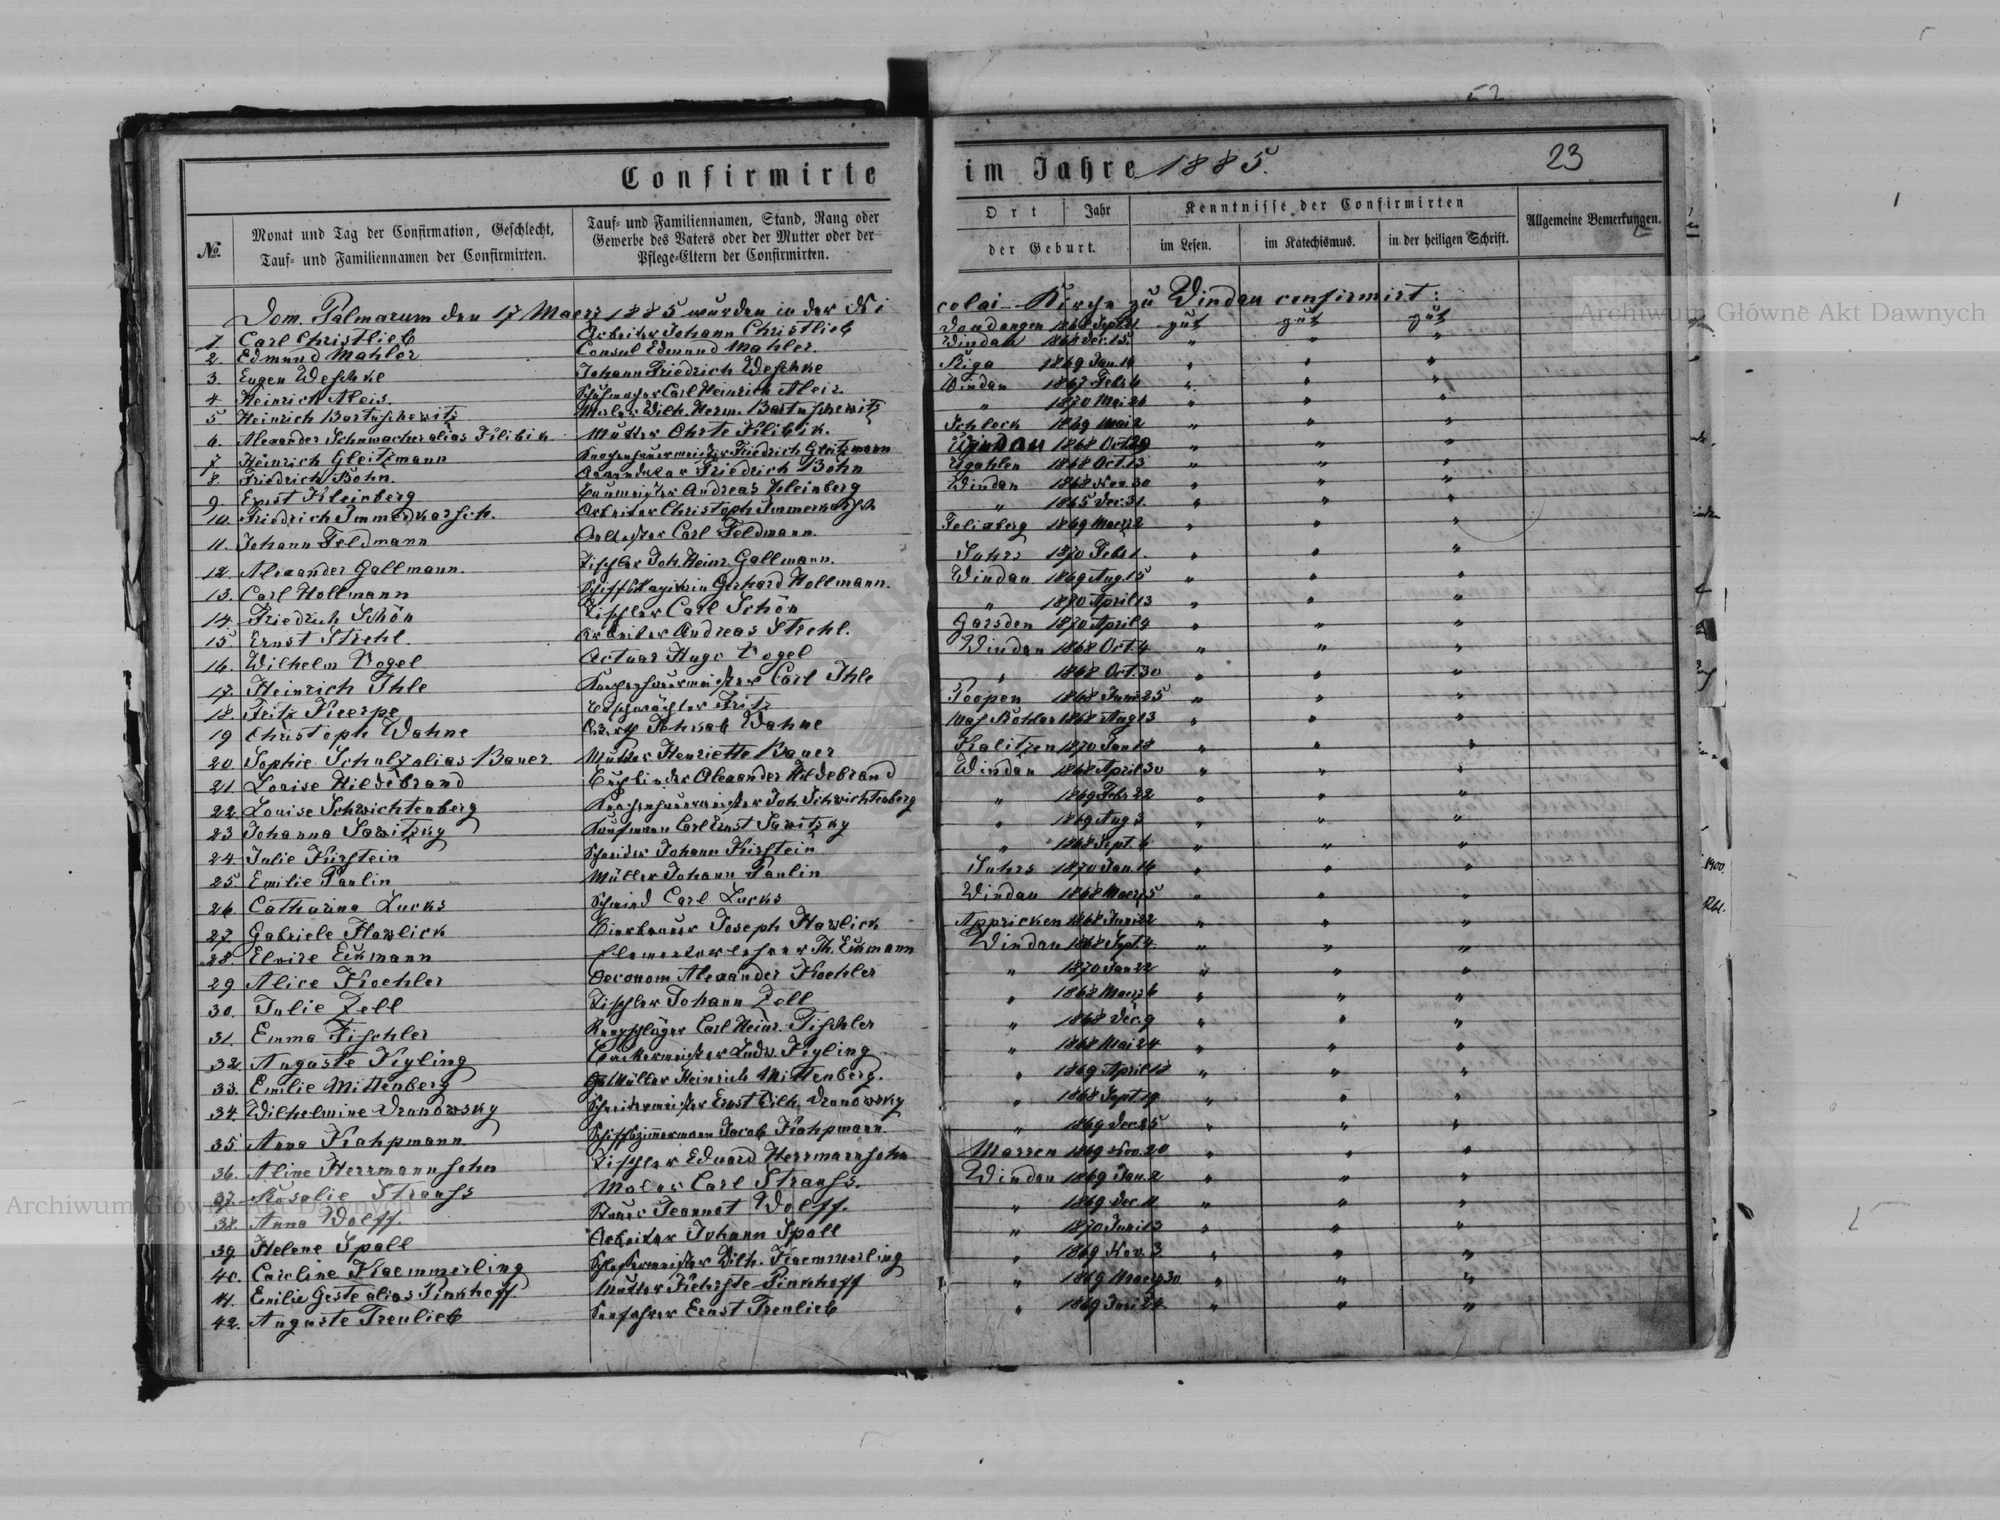 52
Confirmirte im Jahre 1885.
23
№
Monat und Tag der Confirmation, Geschlecht,
Tauf- und Familiennamen der Confirmirten.
Tauf- und Familiennamen, Stand, Rang oder
Gewerbe des Vaters oder der Mutter oder der
Pflege-Eltern der Confirmirten.
Ort Jahr
der Geburt.
Kenntnisse der Confirmirten
im Lesen. im Katechismus. in der heiligen Schrift.
Allgemeine Bemerkungen.
Dom. Palmarum den 17 Maerz 1885 wurden in der Nicolai-Kirche zu Windau confirmirt:
1 Carl Christlieb Arbeiter Johann Christlieb Dondangen 1868 Sept. gut gut gut
2 Edmund Mahler Consul Edmund Mahler. Windau 1868 Dec. 15. " " "
3. Eugen Weschke Johann Friedrich Weschke Riga 1869 Jan. 14 " " "
4 Heinrich Aleis. Schuhmacher Carl Heinrich Aleis. Windau 1867 Febr. 6 " " "
5 Heinrich Bartuschewitz Maler Wilh. Herm. Bartuschewitz " 1870 Mai 26 " " "
6. Alexander Schumacher alias Klibik Mutter Ohrte Klibik. Schleck 1869 Mai 2 " " "
7 Heinrich Gleitzmann Knochenhauermeister Friedrich Gleitzmann Windau 1868 Oct. 29 " " "
8. Friedrich Bohn. Arrendator Friedrich Bohn Ugahlen 1868 Oct. 13 " " "
9 Ernst Kleinberg Baumeister Andreas Kleinberg Windau 1868 Nov. 30 " " "
10. Friedrich Immerkarsch. Arbeiter Christoph Immerkarsch " 1865 Dec. 31. " " "
11. Johann Feldmann Carl Feldmann. Felixberg 1869 Maerz 2 " " "
12. Alexander Gallmann. Tischler Joh. Heinr. Gallmann. Suhrs 1870 Febr. 1. " " "
13. Carl Hollmann Schiffskapitain Gerhard Hollmann. Windau 1869 Aug. 15 " " "
14. Friedrich Schön Tischler Carl Schön " 1870 April 13 " " "
15 Ernst Strehl. Arbeiter Andreas Strehl. Garsden 1870 April 4 " " "
16. Wilhelm Vogel Actuar Hugo Vogel Windau 1868 Oct. 4 " " "
17. Heinrich Ihle Knochenhauermeister Carl Ihle " 1868 Oct. 30 " " "
18. Fritz Kneerpe Fritz Poopen 1868 Juni 25 " " "
19 Christoph Wahne Jehkab Wahne 1868 Aug. 13 " " "
20 Sophie Schulz alias Bauer. Mutter Henriette Bauer Kalitzen 1870 Jan. 18 " " "
21. Louise Hildebrand Buchbinder Alexander Hildebrand Windau 1868 April 30 " " "
22. Louise Schwichtenberg Knochenhauermeister Joh. Schwichtenberg " 1869 Febr. 22 " " "
23 Johanna Sawitzky Kaufmann Carl Ernst Sawitzky " 1869 Aug. 3 " " "
24. Julie Kirstein Schneider Johann Kirstein " 1868 Sept. 6 " " "
25. Emilie Paulin Müller Johann Paulin Suhrs 1870 Jan. 16 " " "
26. Catharina Lucks Schmied Carl Lucks Windau 1868 Maerz 5 " " "
27. Gabriele Hawlick Bierbrauer Joseph Hawlick Appricken 1868 Juni 22 " " "
28. Elvire Eckmann Elementarlehrer Th. Eckmann Windau 1868 Sept. 4. " " "
29 Alice Koehler Oeconom Alexander Koehler " 1870 Jan. 22 " " "
30. Julie Zell Tischler Johann Zell " 1868 Maerz 6 " " "
31. Emma Fischler Reepschläger Carl Heinr. Fischler " 1868 Dec. 9 " " "
32. Auguste Kyling Bäckermeister Ludw. Kyling " 1868 Mai 24 " " "
33. Emilie Mittenberg Müller Heinrich Mittenberg. " 1869 April 18 " " "
34. Wilhelmine Dranowsky Schneidermeister Ernst Wilh. Dranowsky " 1868 Sept. 19 " " "
35. Anna Krahpmann. Schiffszimmermann Jacob Krahpmann. " 1869 Dec. 25 " " "
36. Aline Herrmannsohn Tischler Eduard Herrmannsohn Massen 1869 Nov. 20 " " "
37. Rosalie Strauss Maler Carl Strauss. Windau 1869 Jan. 2 " " "
38. Anna Wolff. Jeannot Wolff. " 1869 Dec. 11 " " "
39. Helene Spall Arbeiter Johann Spall " 1870 Juni 13 " " "
40. Caroline Kaemmerling Schlossermeister Wilh. Kaemmerling " 1869 Nov. 3 " " "
41. Emilie Geste alias Pinkhoff Mutter Pinkhoff " 1869 Maerz 30 " " "
42. Auguste Treulieb Seefahrer Ernst Treulieb " 1869 Juni 24. " " "
Archiwum Główne Akt Dawnych
Archiwum Główne Akt Dawnych